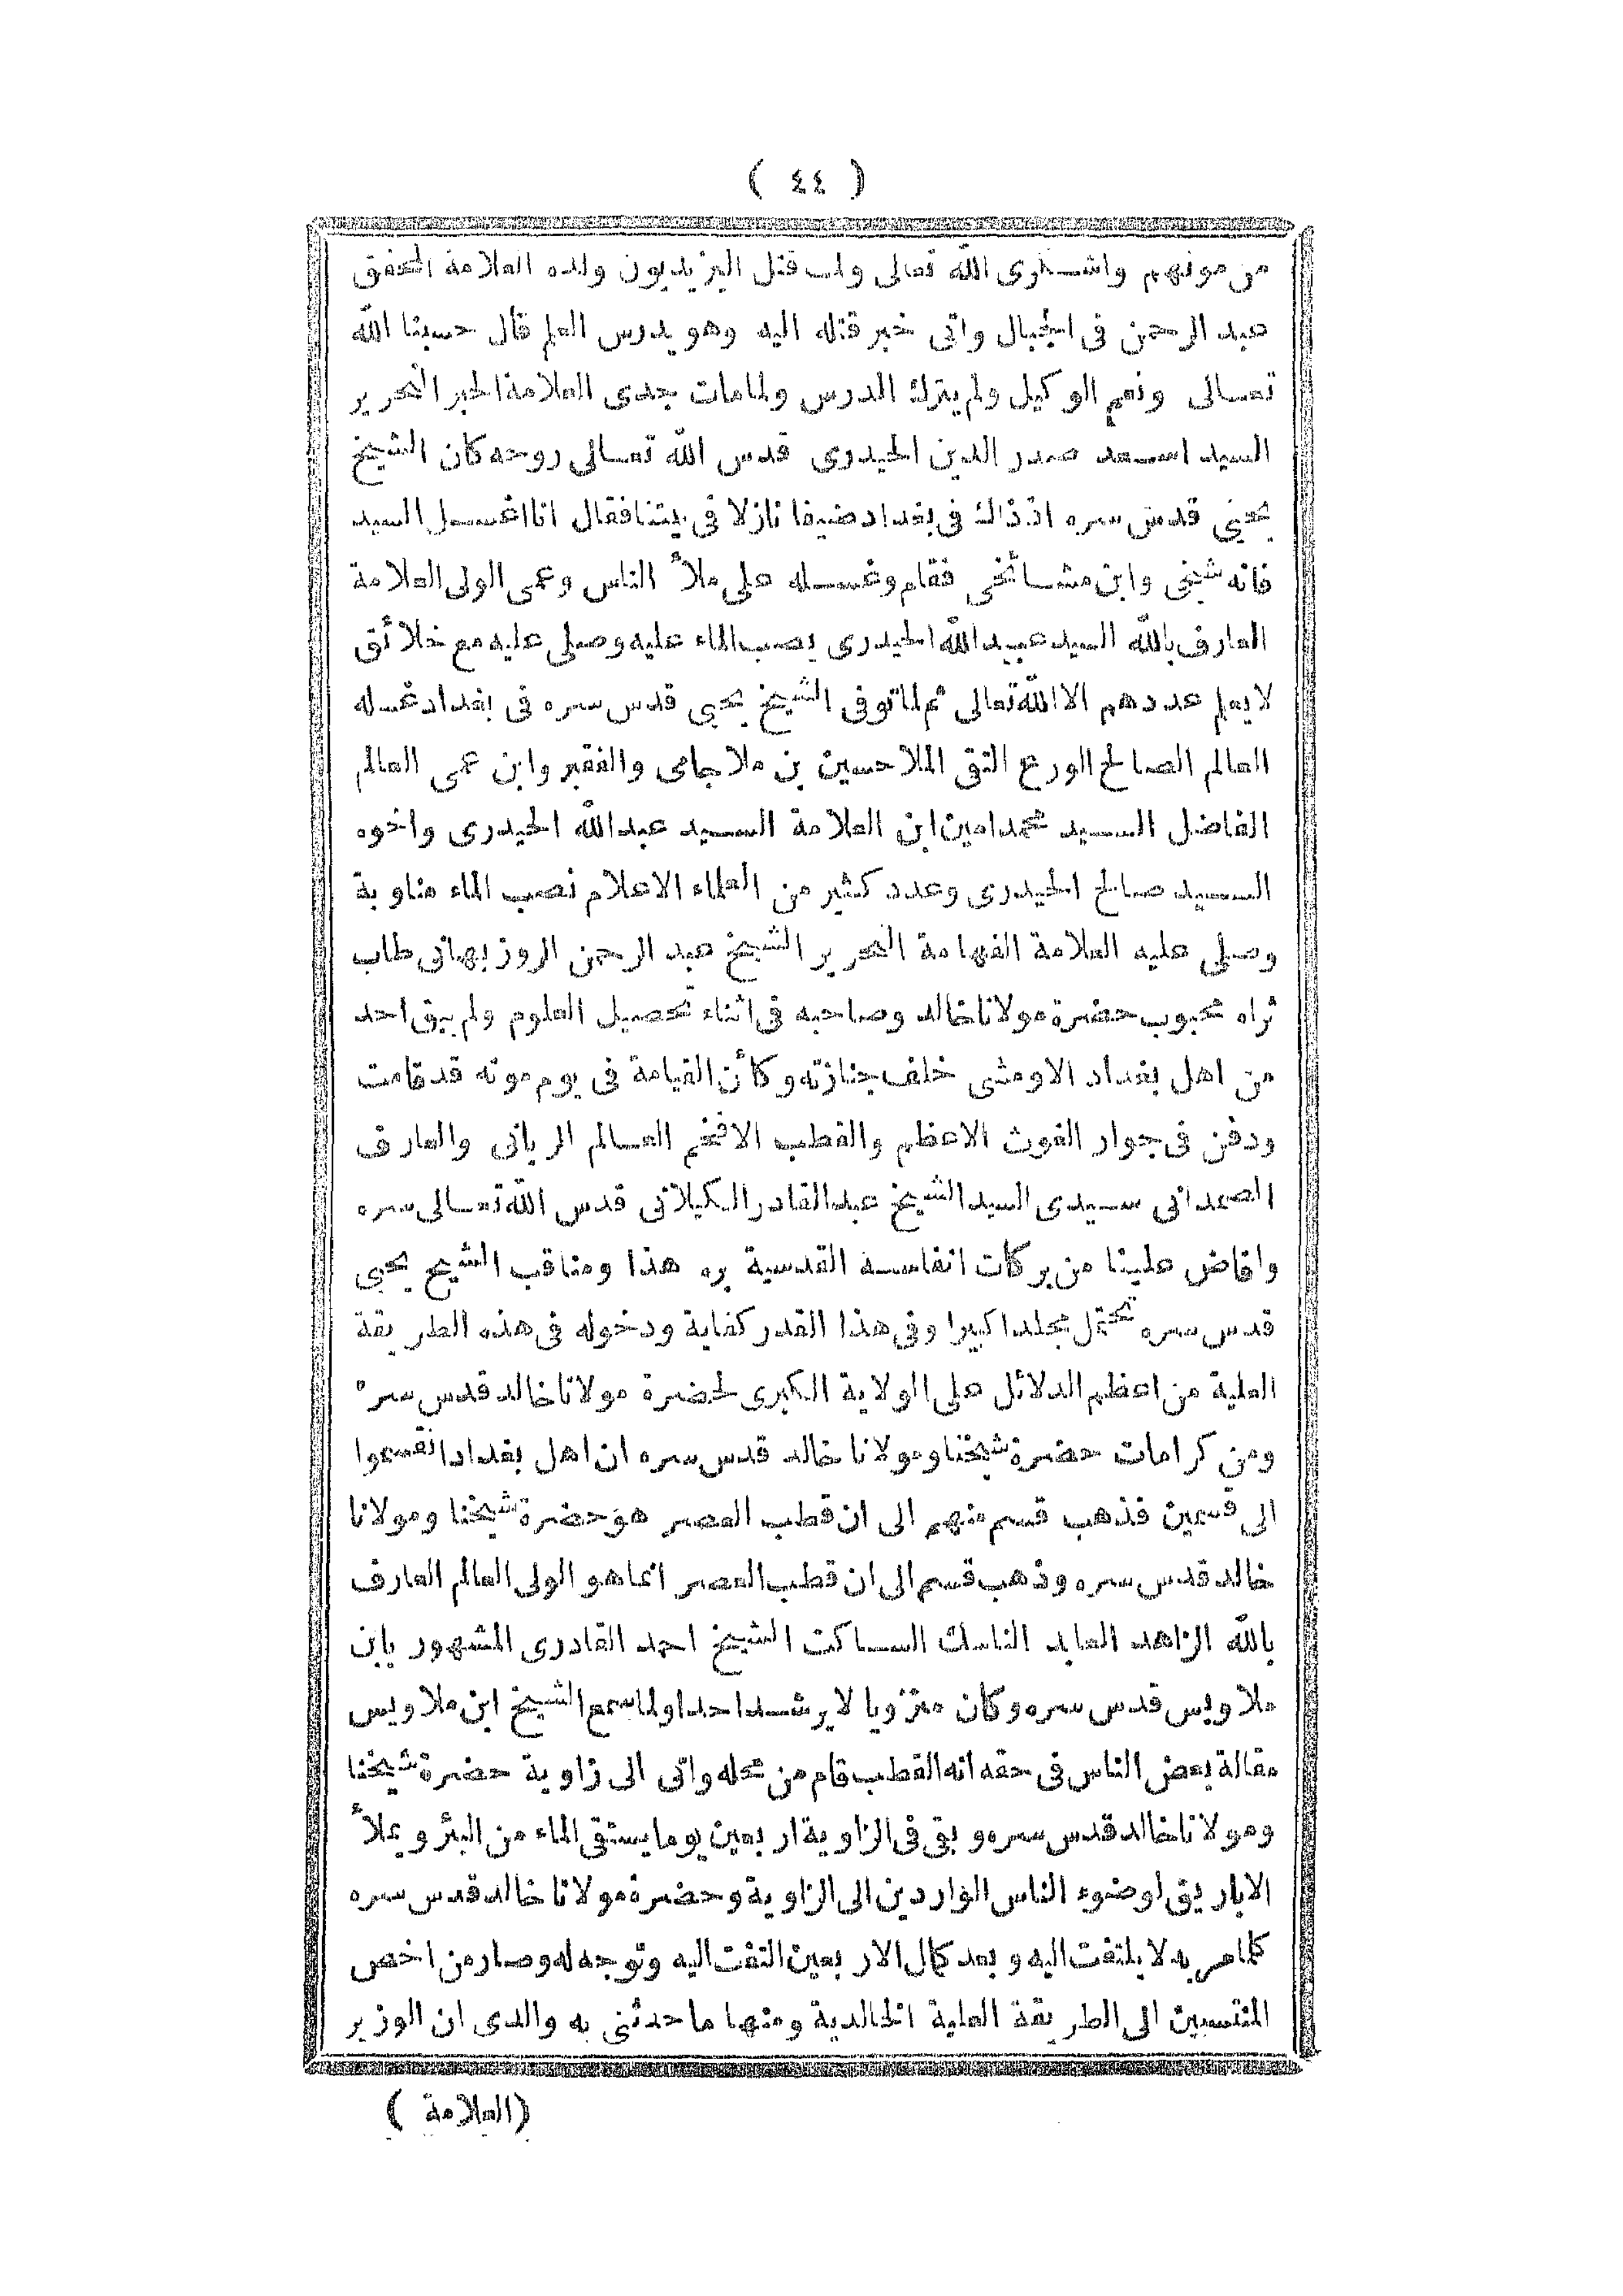 ( ٤٤ )
من موتهم واشكرى الله تعالى ولما قتل اليزيديون ولده العلامة المحقق
عبد الرحمن فى الجبال واتى خبر قتله اليه وهو يدرس العلم قال حسبنا الله
تعالى ونعم الوكيل ولم يترك الدرس ولما مات جدى العلامة الحبر النحرير
السيد اسعد صدر الدين الحيدرى قدس الله تعالى روحه كان الشيخ
يحيى قدس سره اذ ذاك فى بغداد ضيفا نازلا فى بيتنا فقال انا اغسل السيد
فانه شيخى وابن مشائخى فقام وغسله على ملأ الناس وعمى الولى العلامة
العارف بالله السيد عبيد الله الحيدرى يصب الماء عليه وصلى عليه مع خلائق
لا يعلم عددهم الا الله تعالى ثم لما توفى الشيخ يحيى قدس سره فى بغداد غسله
العالم الصالح الورع التقى الملا حسين بن ملا جامى والفقير وابن عمى العالم
الفاضل السيد محمد امين ابن العلامة السيد عبد الله الحيدرى واخوه
السيد صالح الحيدرى وعدد كثير من العلماء الاعلام نصب الماء مناوبة
وصلى عليه العلامة الفهامة النحرير الشيخ عبد الرحمن الروزبهانى طاب
ثراه محبوب حضرة مولانا خالد وصاحبه فى اثناء تحصيل العلوم ولم يبق احد
من اهل بغداد الا ومشى خلف جنازته وكأن القيامة فى يوم موته قد قامت
ودفن فى جوار الغوث الاعظم والقطب الافخم العالم الربانى والعارف
الصمدانى سيدى السيد الشيخ عبد القادر الكيلانى قدس الله تعالى سره
وافاض علينا من بركات انفاسه القدسية بره هذا ومناقب الشيخ يحيى
قدس سره تحتمل مجلدا كبيرا وفى هذا القدر كفاية ودخوله فى هذه الطريقة
العلية من اعظم الدلائل على الولاية الكبرى لحضرة مولانا خالد قدس سره
ومن كرامات حضرة شيخنا ومولانا خالد قدس سره ان اهل بغداد انقسموا
الى قسمين فذهب قسم منهم الى ان قطب العصر هو حضرة شيخنا ومولانا
خالد قدس سره وذهب قسم الى ان قطب العصر انما هو الولى العالم العارف
بالله الزاهد العابد الناسك الساكت الشيخ احمد القادرى المشهور بابن
ملا ويس قدس سره وكان منزويا لا يرشد احدا ولما سمع الشيخ ابن ملا ويس
مقالة بعض الناس فى حقه انه القطب قام من محله واتى الى زاوية حضرة شيخنا
ومولانا خالد قدس سره وبقى فى الزاوية اربعين يوما يستقى الماء من البئر ويملأ
الاباريق لوضوء الناس الواردين الى الزاوية وحضرة مولانا خالد قدس سره
كلما مر به لا يلتفت اليه وبعد كمال الاربعين التفت اليه وتوجه له وصار من اخص
المنتسبين الى الطريقة العلية الخالدية ومنها ما حدثنى به والدى ان الوزير
( العلامة )